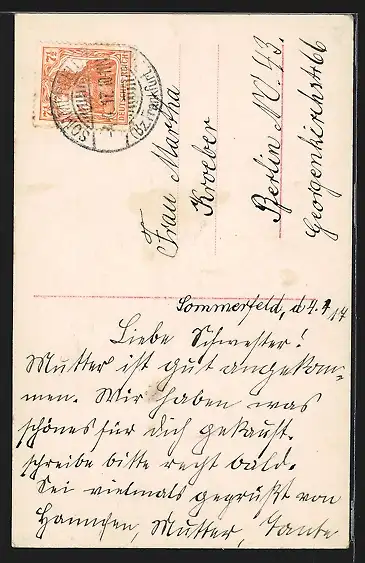 7½ 7½
DEUTSCHES REICH
Frau Martha
Kroeber
Berlin NO. 43.
Georgenkirchstr 66
Sommerfeld, d 4. 4 17
Liebe Schwester!
Mutter ist gut angekom-
men. Wir haben was
schönes für dich gekauft.
schreibe bitte recht bald.
Sei vielmals gegrüßt von
Hannchen, Mutter, Tante